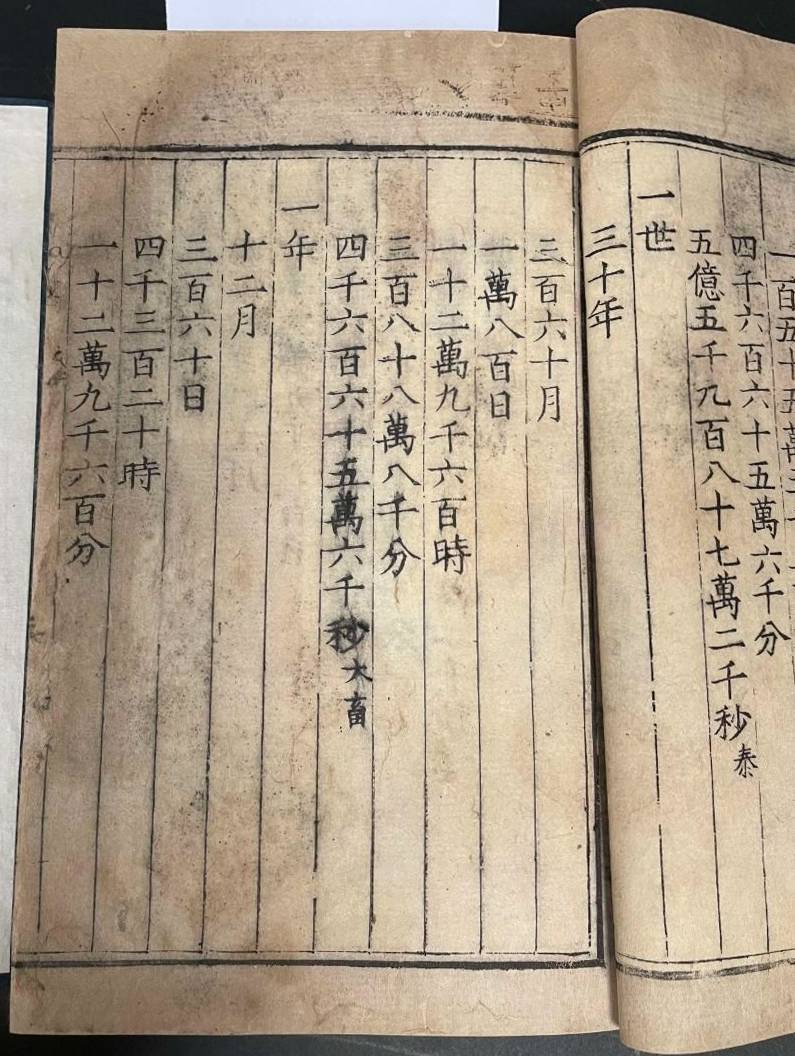 一百五十五萬
四千六百六十五萬六千分
五億五千九百八十七萬二千秒泰
一世
三十年
三百六十月
一萬八百日
一十二萬九千六百時
三百八十八萬八千分
四千六百六十五萬六千秒大畜
一年
十二月
三百六十日
四千三百二十時
一十二萬九千六百分